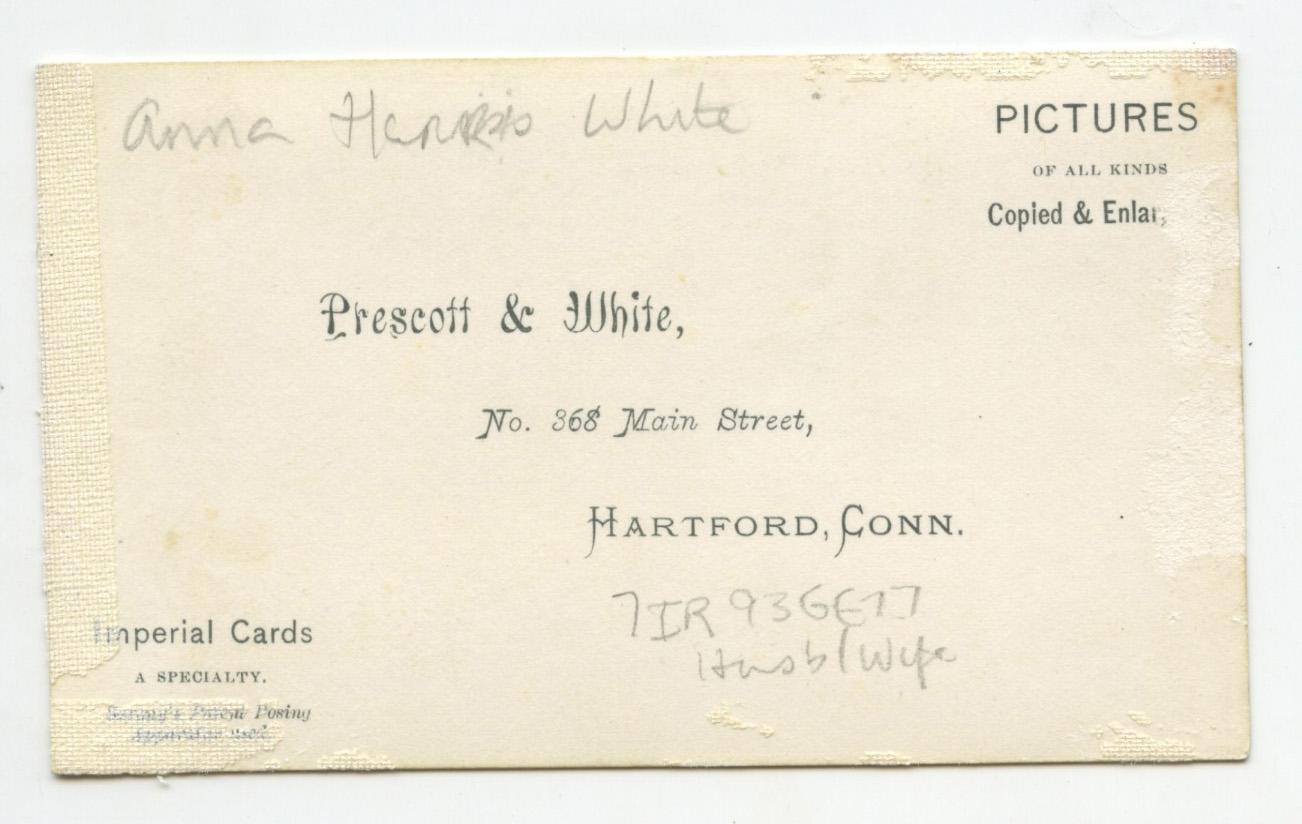 Anna Harris White
PICTURES
OF ALL KINDS
Copied & Enlar
Prescott & White,
No. 368 Main Street,
HARTFORD, CONN.
7IR 93GE77
Husb/Wife
Imperial Cards
A SPECIALTY.
Sarony's Patent Posing
Apparatus used.